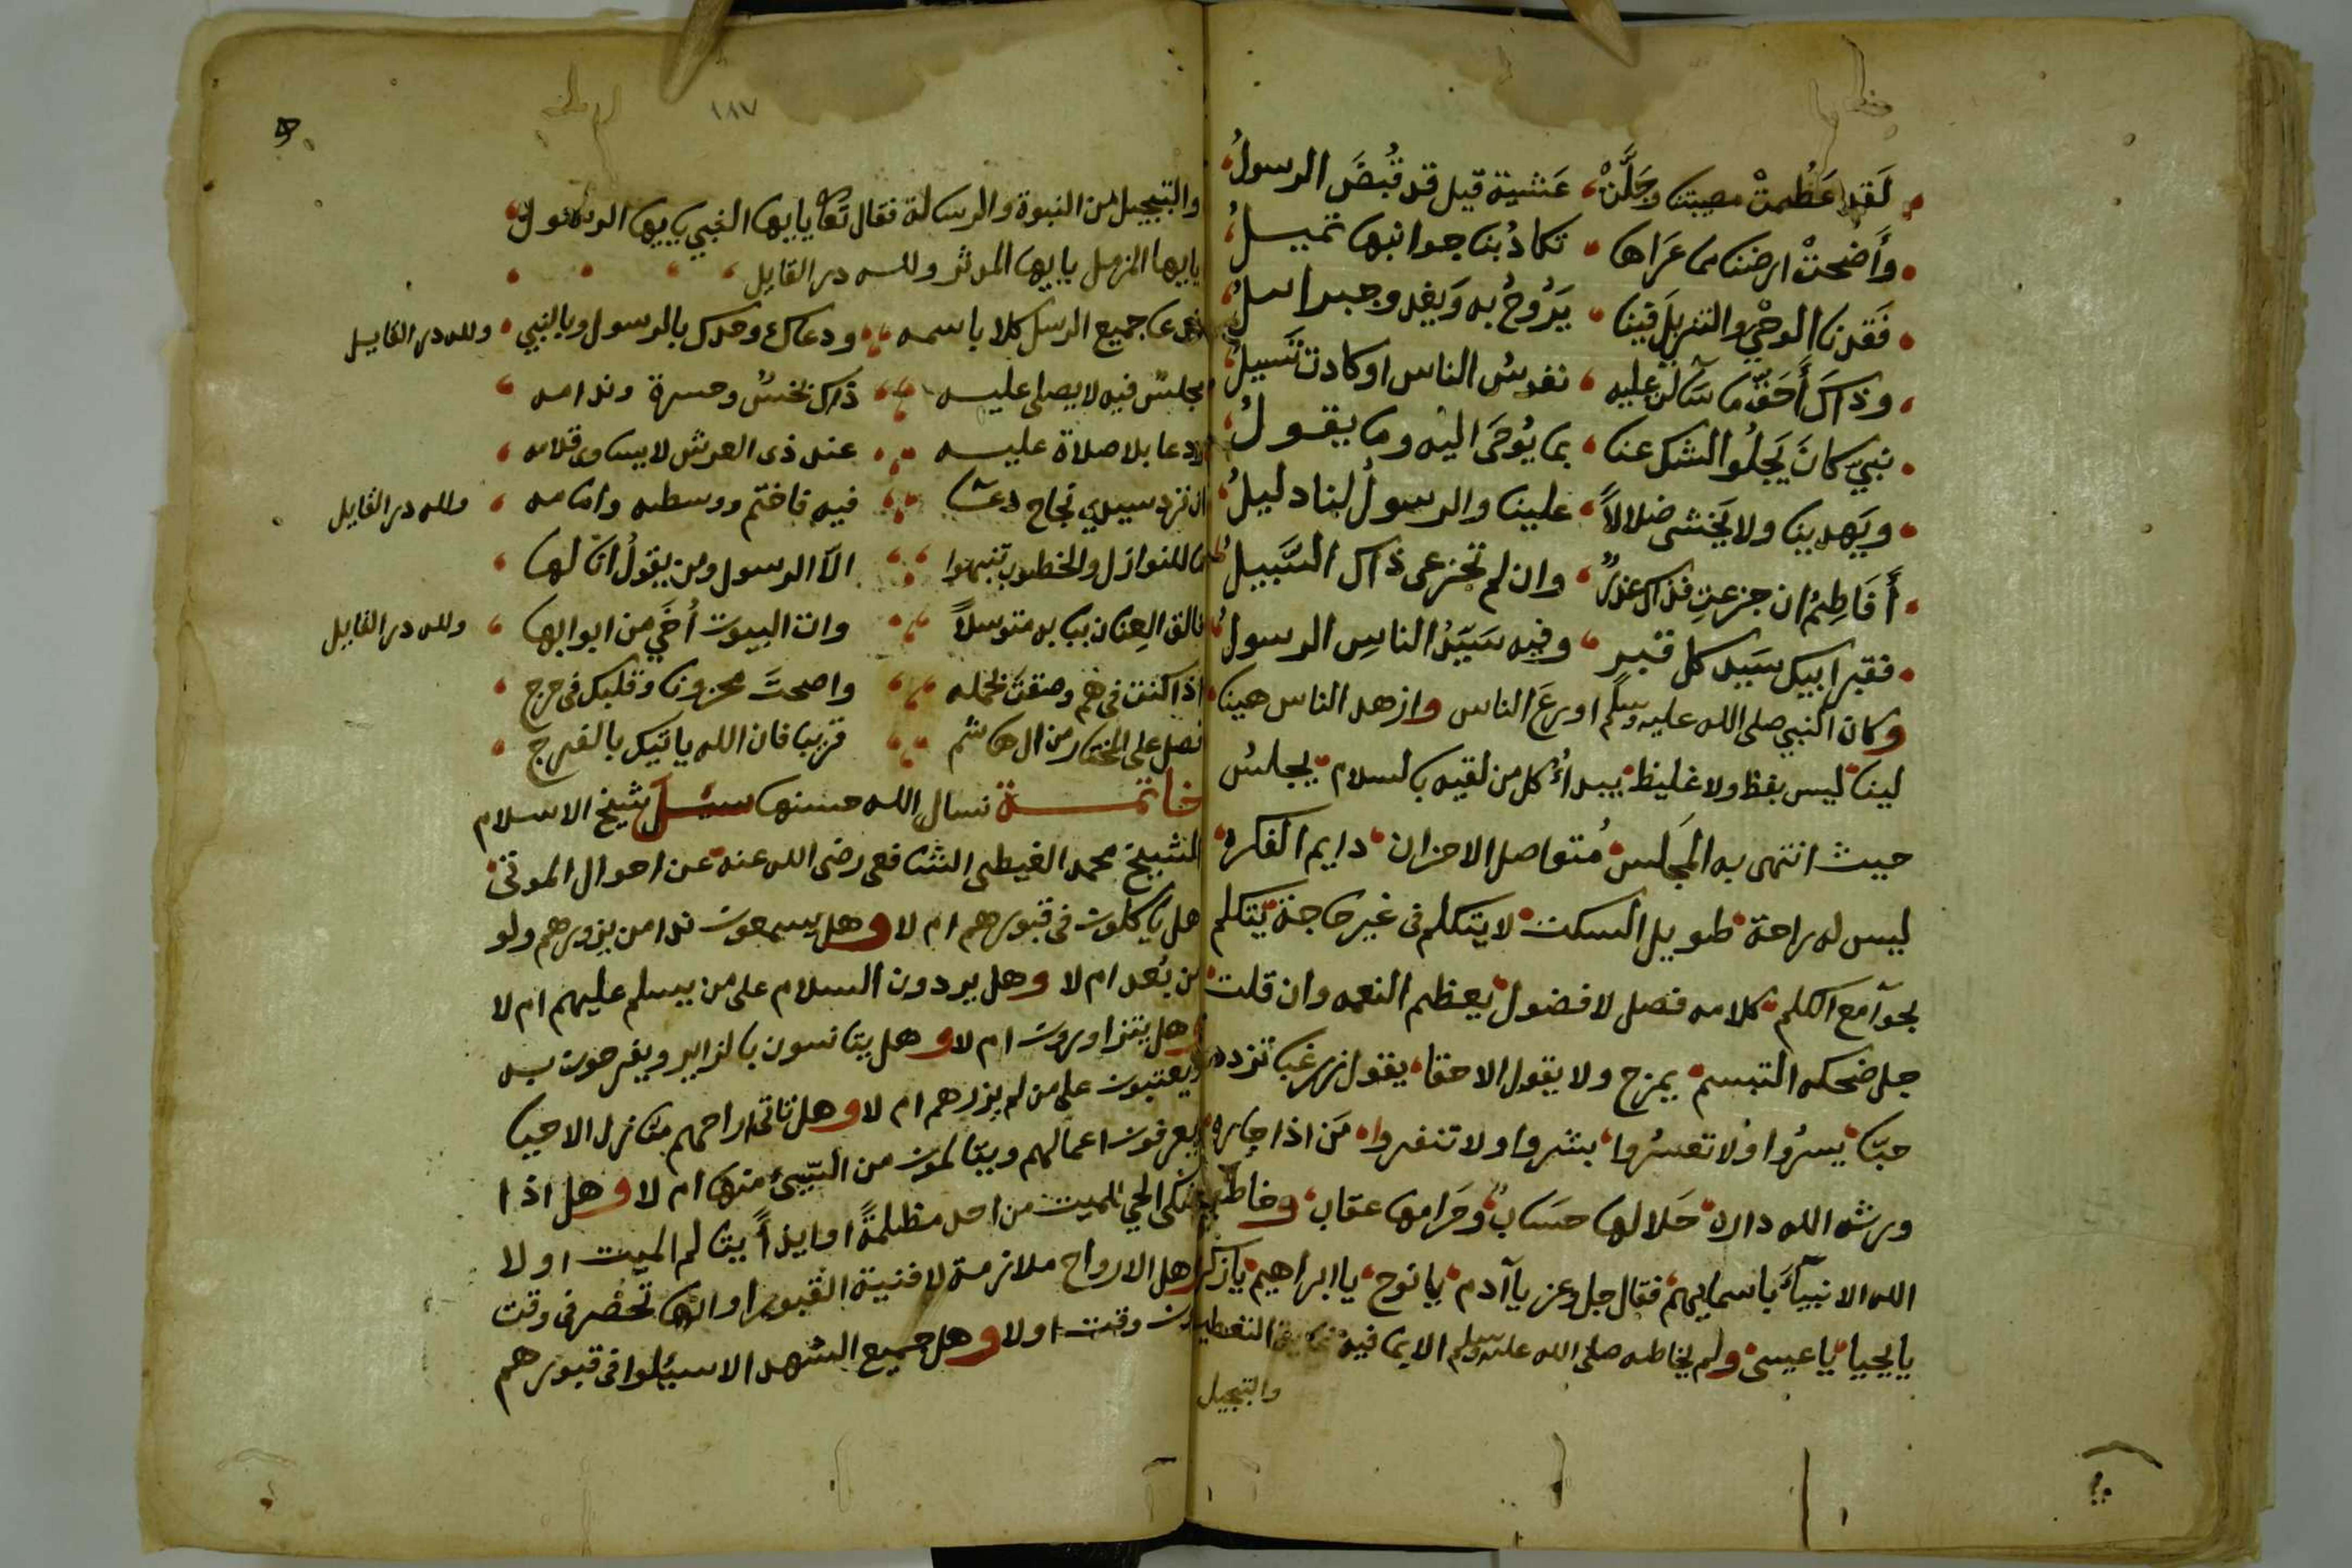 لَقد عَظُمتْ مصيبتنا وجَلَّتْ، عَشية قيل قد قُبضَ الرسولُ
وأَضْحتْ ارضنا مما عَرَاها، تكادُ بنا جوانبها تميلُ
فَقَدنا الوحْيَ والتنزيلَ فينا، يَرُوحُ به وَيغدو جبراسلُ
وذاكَ أَحَقّ ما سَالت عليه، نفوسُ الناس او كادت تَسيلُ
نبيّ كانَ يَجلُوا الشك عنا، بما يُوحَى اليه وما يقولُ
ويَهدينا ولا يَخشى ضلالاً، علينا والرسولُ لنا دليلُ
أَفَاطِمُ ان جزعتِ فذاك عذرٌ، وان لم تجزعى ذاك السَّبيلُ
فقبر ابيك سَيد كل قبر، وفيه سَيّدُ الناسِ الرسولُ
وكان النبي صلى الله عليه وسلم اورعَ الناس وازهد الناس هينا
لينا ليس بفظ ولا غليظ يبدأُ كل من لقيه بالسلام يجلسُ
حيث انتهى به المَجلس مُتواصل الاحزان، دايم الفكرة
ليس له راحة طويل السكت لا يتكلم فى غير حاجة يتكلم
بجوامع الكلم كلامه فصل لا فضول يعظم النعمه وان قلت
جل ضحكه التبسم يمزح ولا يقول الا حقا، يقول زر غبا تزدد
حبّا يسرُوا ولا تعسرُوا، بشروا ولا تنفروا، مَن اذا جاره
ورثه الله داره حَلالها حسَابٌ وحَرامها عقاب، وخاطب
الله الانبيآء باسمايهم فقال جل وعز يا آدم يا نوح، يا ابراهيم يا زكريا
يا يحيا يا عيسى ولم يخاطبه صلى الله عليه وسلم الا بما فيه التعظيم
والتبجيل
١٨٧
والتبجيل من النبوة والرسالة فقال تعا يا ايها النبي يايها الرسول
يا يها المزمل يا يها المدثر ولله در القايل
ودعا جميع الرسل كلا باسمه، ودعاك وحدك بالرسول وبالنبي ولله در القايل
مجلسٌ فيه لا يصلى عليه، ذاك نحسٌ وحسرة وندامه
لا دعا بلا صلاة عليه، عند ذى العرش لا يساوى قلامه
ان ترد سيدي نجاح دعا، فيه فاختم ووسطه وامامه، ولله در القايل
للنوازل والخطوب تنبهوا، الا الرسول ومن يقولُ انا لها
فالق العِنان ببابه متوسلاً، وات البيوت أُخَيّ من ابوابها، ولله در القايل
اذا كنت فى هم وضقت بحمله، واصحتَ محزونا وقلبك فى حرج
فصل على المختار من ال هاشم، قريبا فان الله ياتيك بالفرج
خاتمة نسال الله حسنها سئل شيخ الاسلام
الشيخ محمد الغيطى الشافعى رضى الله عنه عن احوال الموتى
هل ياكلون فى قبورهم ام لا وهل يسمعون ندا من يزورهم ولو
من بُعد ام لا وهل يردون السلام على من يسلم عليهم ام لا
وهل يتزاورون ام لا وهل يتانسون بالزاير ويفرحون به
ويعتبون على من لم يزرهم ام لا وهل تاتى ارواحهم منازل الاحيا
ويعرفون اعمالهم ويتالمون من السّيئ منها ام لا وهل اذا
شكى الحي للميت من احد مظلمةً او ايذاً يتالم الميت او لا
وهل الارواح ملازمة لافنية القبور او انها تحضر فى وقت
دون وقت او لا وهل جميع الشهدا لا سيُلوا فى قبورهم